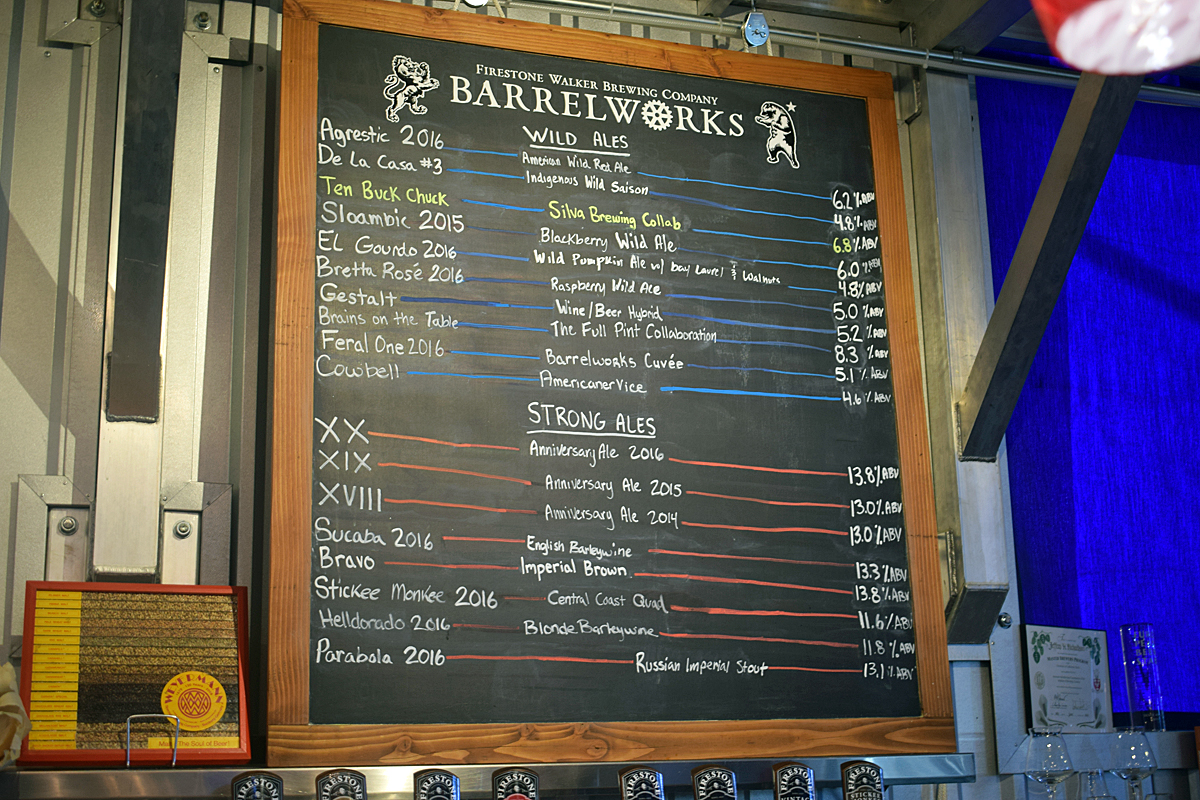 FIRESTONE WALKER BREWING COMPANY
BARRELWORKS
WILD ALES
Agrestic 2016 American Wild Red Ale 6.2% ABV
De La Casa #3 Indigenous Wild Saison 4.8% ABV
Ten Buck Chuck Silva Brewing Collab 6.8% ABV
Sloambic 2015 Blackberry Wild Ale 6.0% ABV
El Gourdo 2016 Wild Pumpkin Ale w/ bay laurel & walnuts 4.8% ABV
Bretta Rosé 2016 Raspberry Wild Ale 5.0% ABV
Gestalt Wine/Beer Hybrid 5.2% ABV
Brains on the Table The Full Pint Collaboration 8.3% ABV
Feral One 2016 Barrelworks Cuvée 5.1% ABV
Cowbell AmericanerVice 4.6% ABV
STRONG ALES
XX Anniversary Ale 2016 13.8% ABV
XIX Anniversary Ale 2015 13.0% ABV
XVIII Anniversary Ale 2014 13.0% ABV
Sucaba 2016 English Barleywine 13.3% ABV
Bravo Imperial Brown 13.8% ABV
Stickee Monkee 2016 Central Coast Quad 11.6% ABV
Helldorado 2016 Blonde Barleywine 11.8% ABV
Parabola 2016 Russian Imperial Stout 13.1% ABV
WEYERMANN
The Soul of Beer!
FIRESTONE
FIRESTONE
FIRESTONE
FIRESTONE
FIRESTONE
FIRESTONE
FIRESTONE
FIRESTONE
VINTAGE
STICKEE